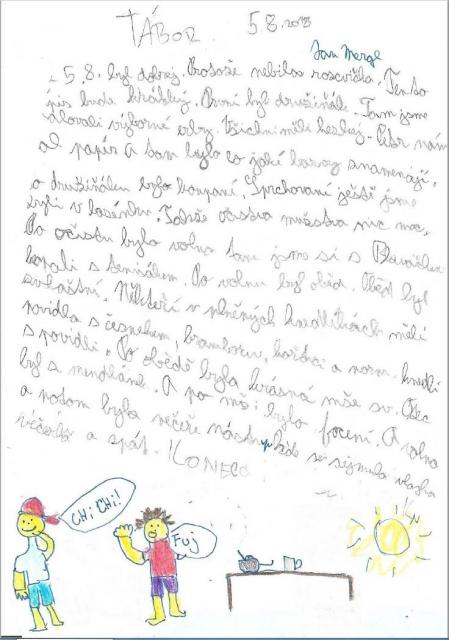 TÁBOR 5 8. 2018
Jan Mergl
5 8. byl dobrej. Protože nebila roscvička. Tento
pis bude krátkej. První byl družiňák. Tam jsme
malovali výborné erby. Všichni měli heskej. Libor nám
dal papír a tam bylo co jaké barvy znamenají,
o družiňáku bylo koupaní. Sprchovaní ještě jsme
byli v bazénku. Takže očista mužstva nic moc,
Po očistu bylo volno tam jsme si s
kopali s tenisákem. Po volnu byl oběd. Oběd byl
zvláštní. Někteří v plněných knedlíkách měli
povidla s česnekem, bramborou, hořčicí a norm. knedl
s povidli. Po obědě byla krásná mše sv. Otec
byl s mendláně. A po mši bylo focení. A volno
a potom byla večeře nástup kde se vlajka
večerka a spát. KONEC
CHi CHi!
Fuj